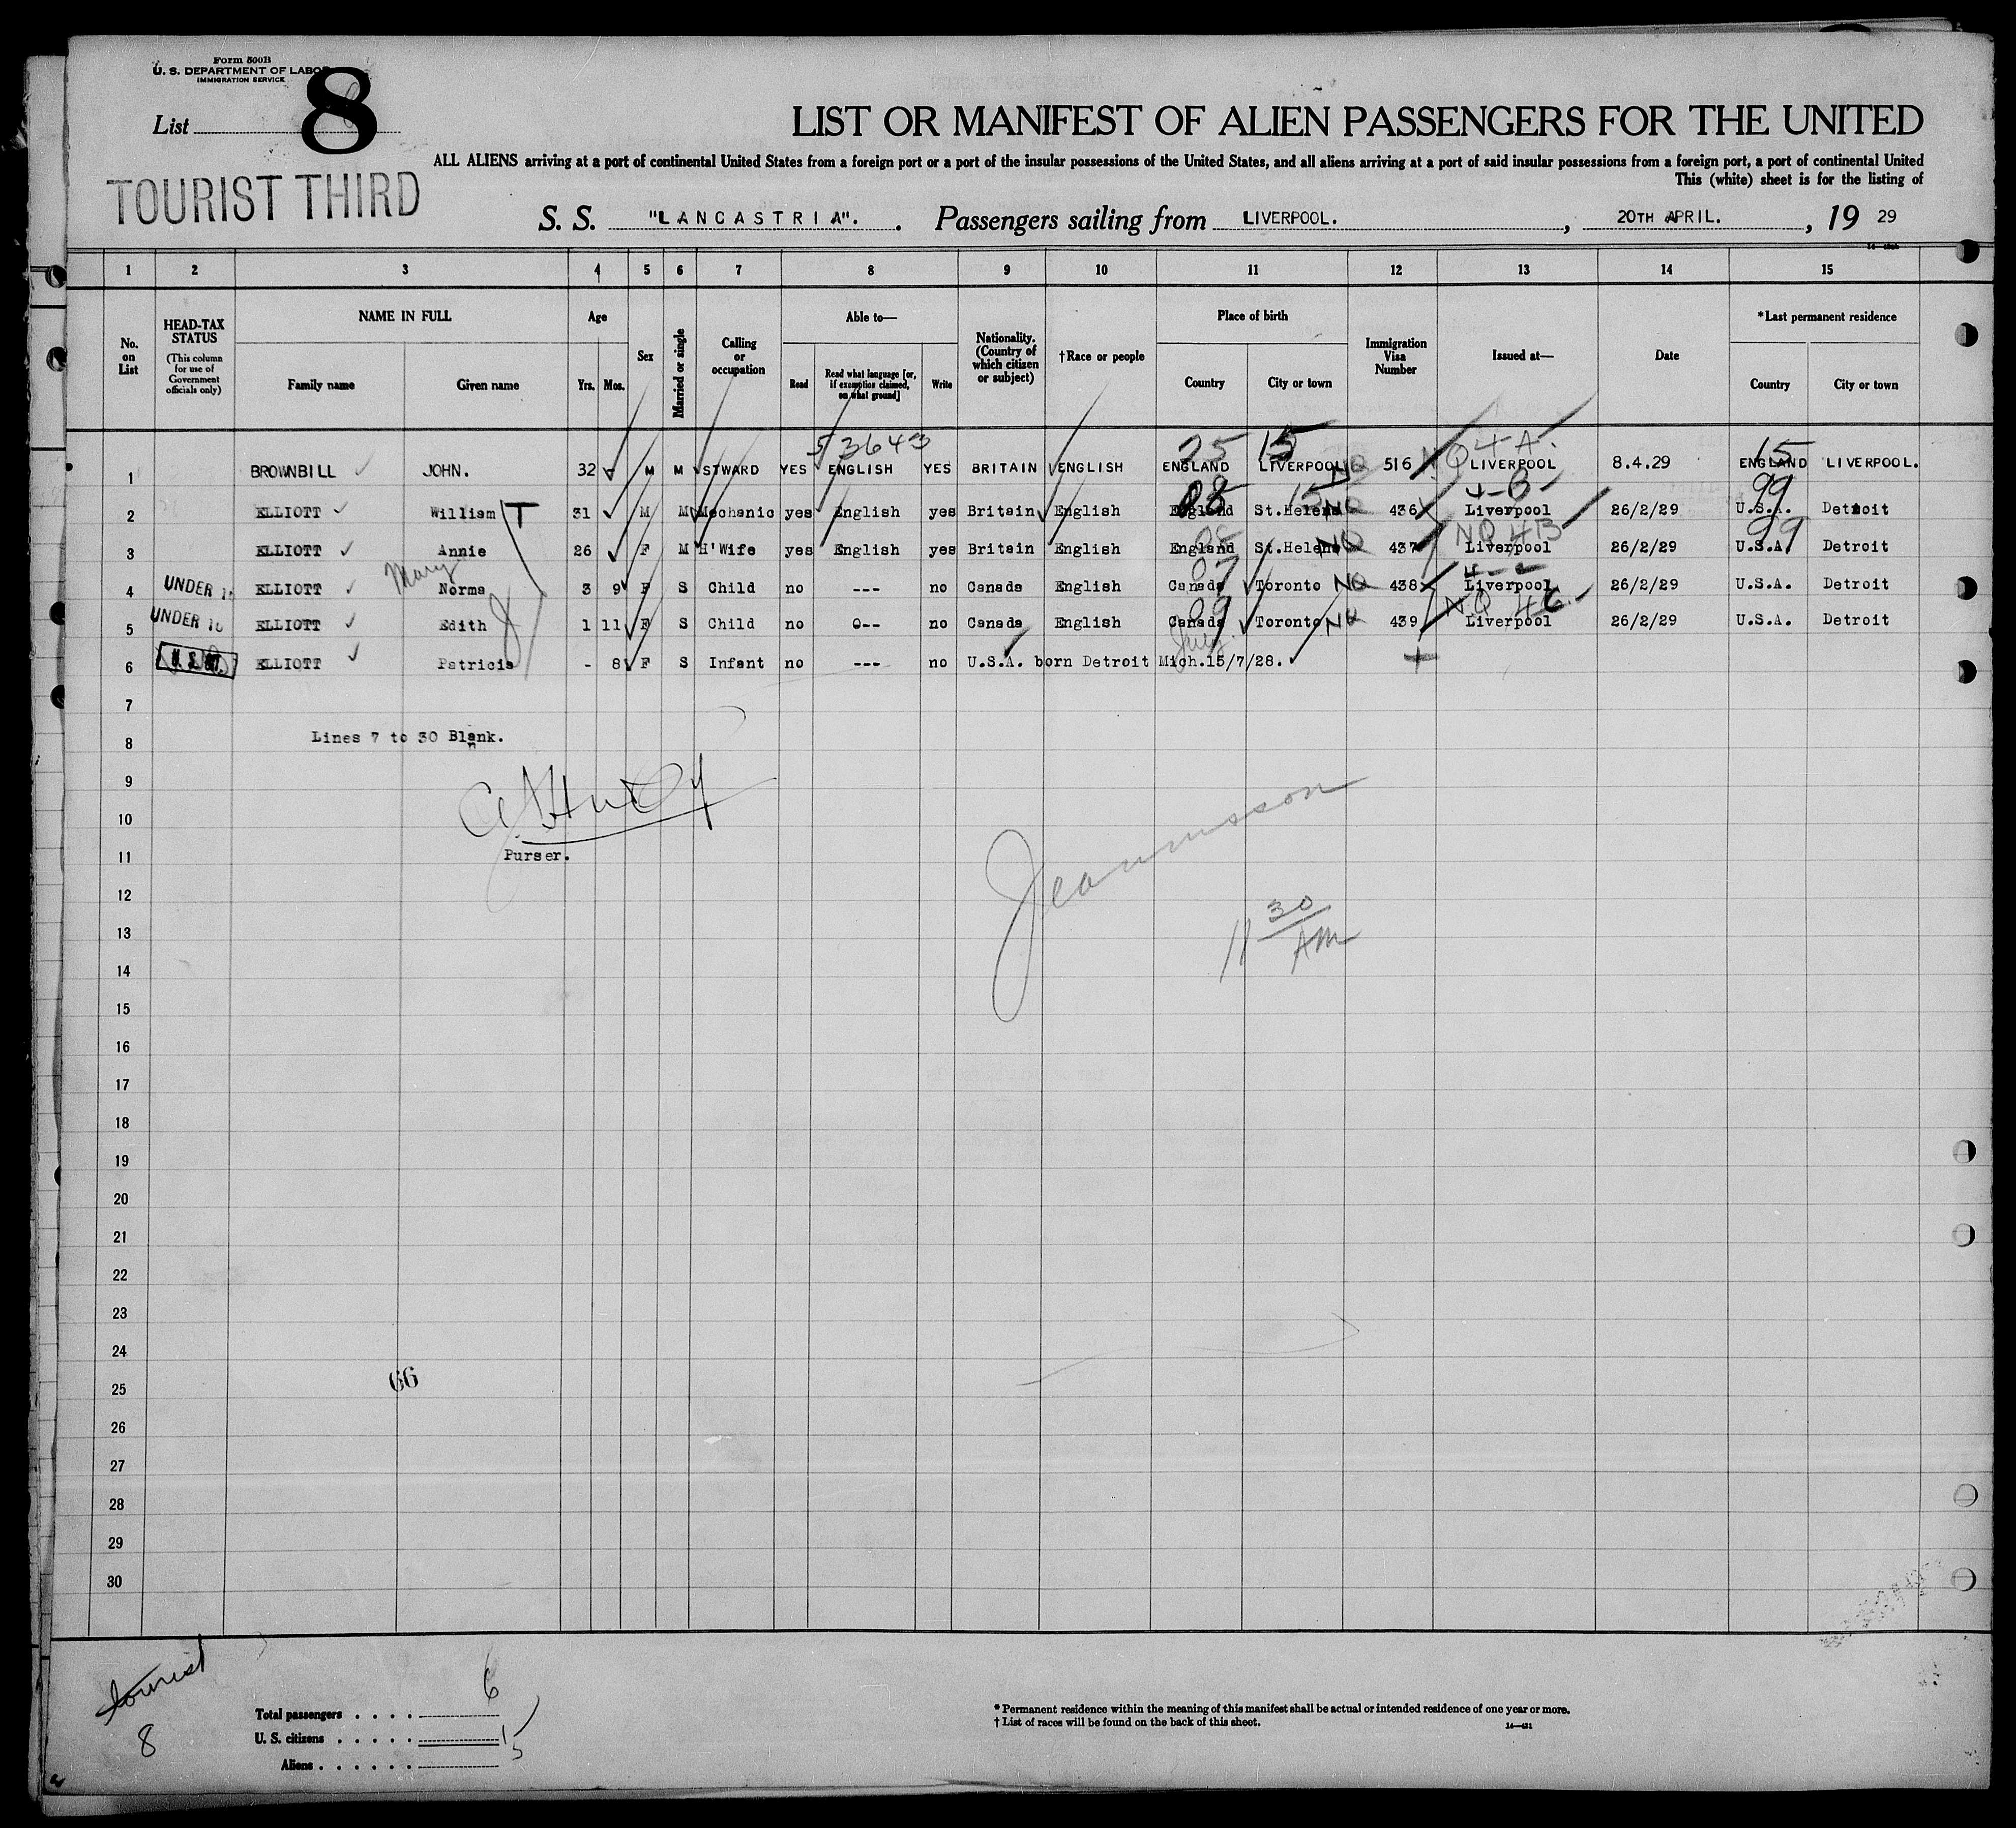 Form 500B
U. S. DEPARTMENT OF LABOR
IMMIGRATION SERVICE
List 8
LIST OR MANIFEST OF ALIEN PASSENGERS FOR THE UNITED
ALL ALIENS arriving at a port of continental United States from a foreign port or a port of the insular possessions of the United States, and all aliens arriving at a port of said insular possessions from a foreign port, a port of continental United
This (white) sheet is for the listing of
TOURIST THIRD
S. S. "LANCASTRIA". Passengers sailing from LIVERPOOL. , 20TH APRIL. , 19 29
1 2 3 4 5 6 7 8 9 10 11 12 13 14 15
No. on List
HEAD-TAX STATUS (This column for use of Government officials only)
NAME IN FULL
Family name
Given name
Age
Yrs. Mos.
Sex
Married or single
Calling or occupation
Able to—
Read
Read what language [or, if exemption claimed, on what ground]
Write
Nationality. (Country of which citizen or subject)
†Race or people
Place of birth
Country
City or town
Immigration Visa Number
Issued at—
Date
*Last permanent residence
Country
City or town
53643 25 15 NQ 4-A. 15
1 BROWNBILL JOHN. 32 M M STWARD YES ENGLISH YES BRITAIN ENGLISH ENGLAND LIVERPOOL 516 LIVERPOOL 8.4.29 ENGLAND LIVERPOOL.
15 4-B 99
2 ELLIOTT William T 31 M M Mechanic yes English yes Britain English England St.Helens NQ 436 Liverpool 26/2/29 U.S.A. Detroit
NQ 4B 99
3 ELLIOTT Annie 26 F M H'Wife yes English yes Britain English England St.Helens NQ 437 Liverpool 26/2/29 U.S.A. Detroit
Mary 07
4 UNDER 16 ELLIOTT Norma 3 9 F S Child no --- no Canada English Canada Toronto NQ 438 Liverpool 26/2/29 U.S.A. Detroit
09 NQ 4C
5 UNDER 16 ELLIOTT Edith 1 11 F S Child no 0-- no Canada English Canada Toronto NQ 439 Liverpool 26/2/29 U.S.A. Detroit
July
6 ELLIOTT Patricia - 8 F S Infant no --- no U.S.A. born Detroit Mich.15/7/28.
7
Lines 7 to 30 Blank.
8
9
10
Purser.
11
11 30 AM
12
13
14
15
16
17
18
19
20
21
22
23
24
66
25
26
27
28
29
30
tourist
8
Total passengers . . . . 6
U. S. citizens . . . . . 1
Aliens . . . . . . 5
* Permanent residence within the meaning of this manifest shall be actual or intended residence of one year or more.
† List of races will be found on the back of this sheet.